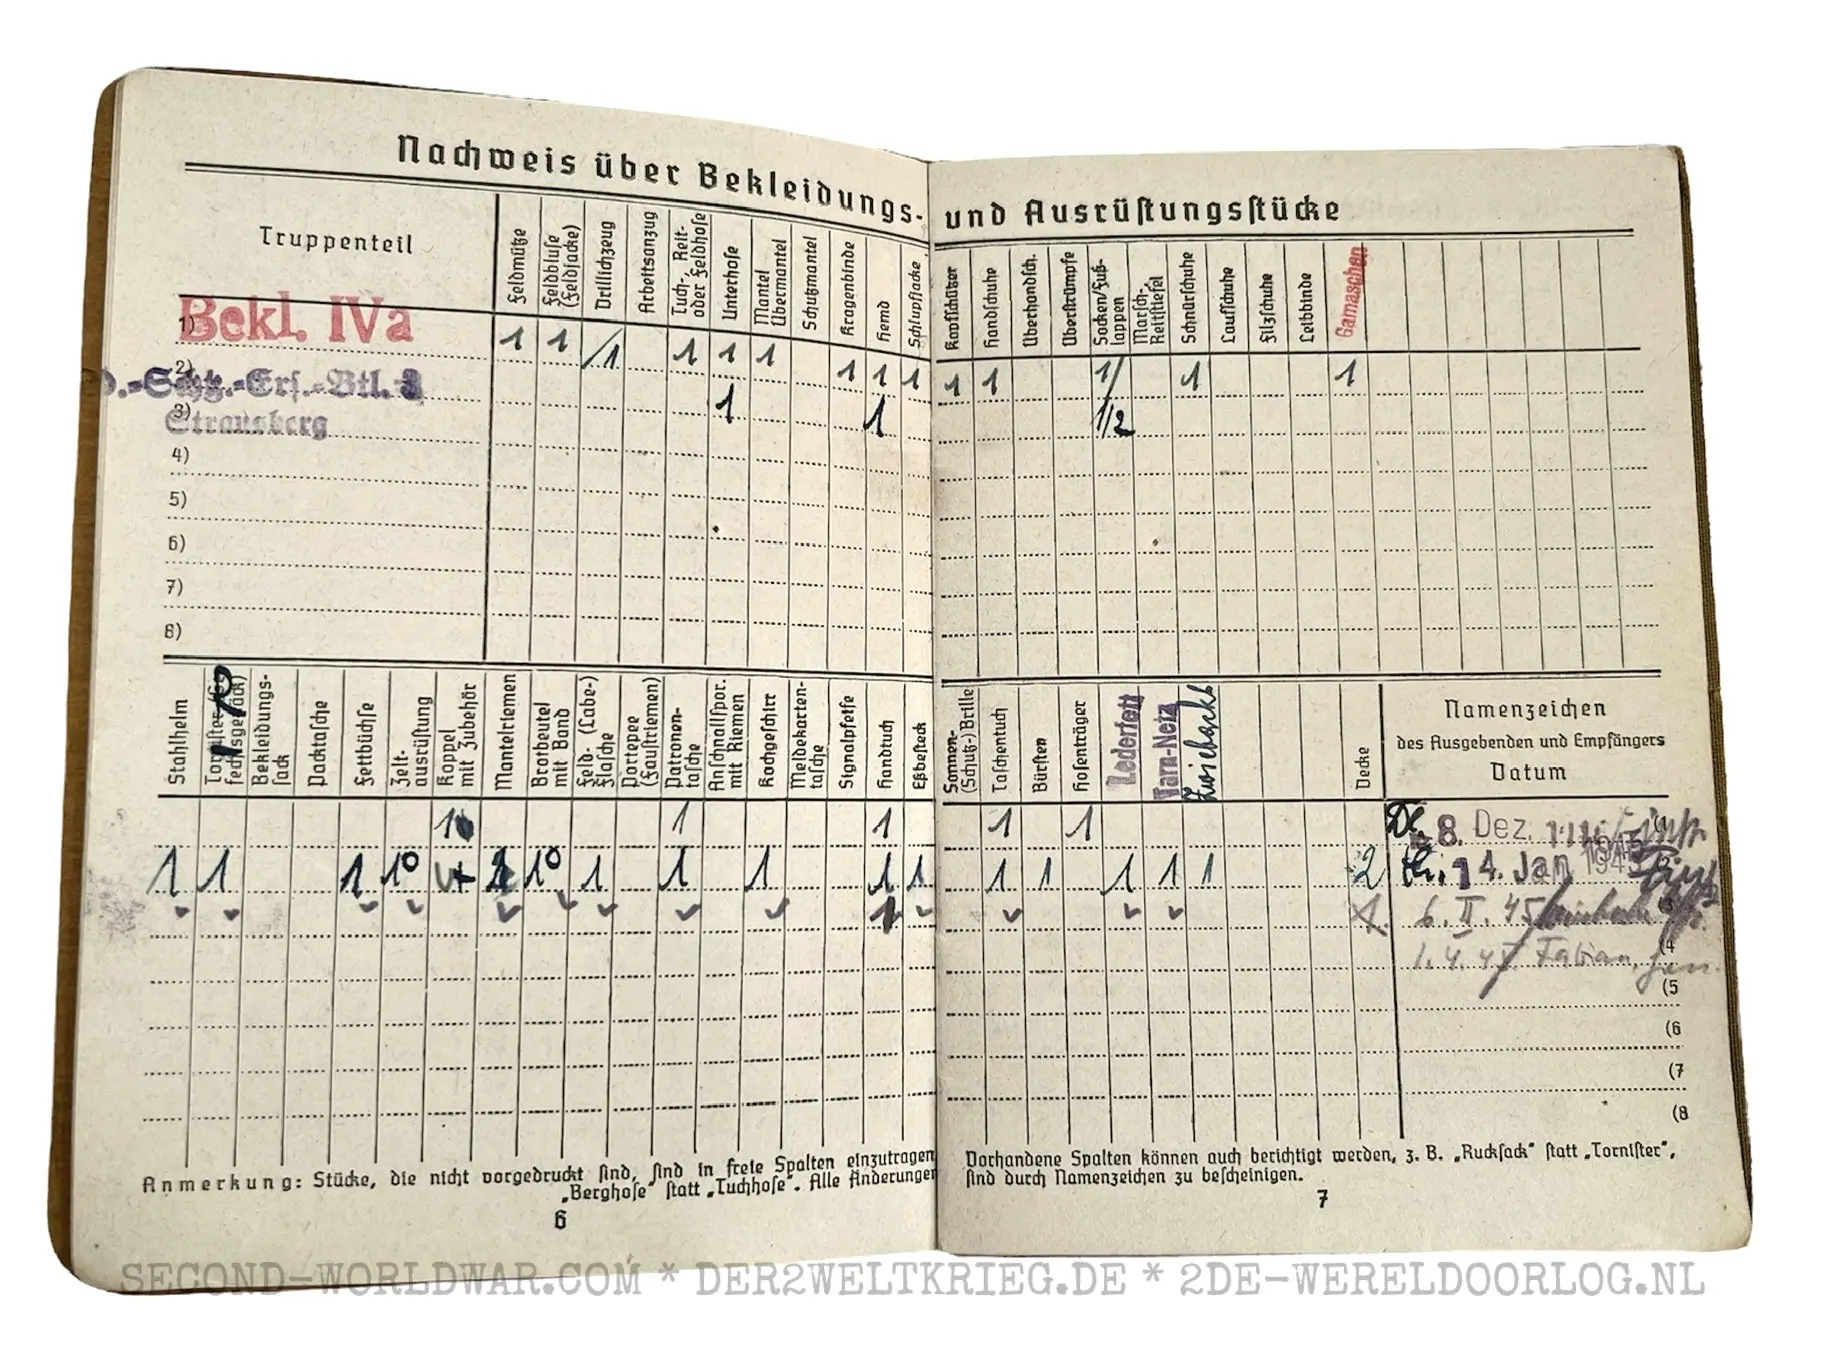 Nachweis über Bekleidungs- und Ausrüstungsstücke
Truppenteil
Feldmütze
Feldbluse (Feldjacke)
Drillichzeug
Arbeitsanzug
Tuch-, Reit- oder Feldhose
Unterhose
Mantel Übermantel
Schutzmantel
Kragenbinde
Hemd
Schlupfjacke
Kopfschützer
Handschuhe
Überhandsch.
Überstrümpfe
Socken/Fuß-lappen
Marsch-, Reitstiefel
Schnürschuhe
Laufschuhe
Filzschuhe
Leibbinde
Gamaschen
1) Bekl. IVa 1 1 /1 1 1 1 1 1 1 1 1 1/ 1 1
2) .-Ers.-Btl. 1 1 1/2
3) Strausberg
4)
5)
6)
7)
8)
Stahlhelm
fechtsgepäck)
Bekleidungs-sack
Packtasche
Fettbüchse
Zelt-ausrüstung
Koppel mit Zubehör
Mantelriemen
Brotbeutel mit Band
Feld- (Labe-) Flasche
Portepee (Faustriemen)
Patronen-tasche
Anschnallspor. mit Riemen
Kochgeschirr
Meldekarten-tasche
Signalpfeife
Handtuch
Eßbesteck
Sonnen-(Schutz-) Brille
Taschentuch
Bürsten
Hosenträger
Lederfett
Tarn-Netz
Decke
Namenzeichen
des Ausgebenden und Empfängers
Datum
1 1 1 1 1 8. Dez.
1 1 1 1 1 1 1 1 1 1 1 1 1 1 1 1 2 14. Jan 194
1 6. II. 45
1. 4. 45 Fabian (4
(5
(6
(7
(8
Anmerkung: Stücke, die nicht vorgedruckt sind, sind in freie Spalten einzutragen
„Berghose" statt „Tuchhose". Alle Änderungen
6
Vorhandene Spalten können auch berichtigt werden, z. B. „Rucksack" statt „Tornister",
sind durch Namenzeichen zu bescheinigen.
7
SECOND-WORLDWAR.COM * DER2WELTKRIEG.DE * 2DE-WERELDOORLOG.NL